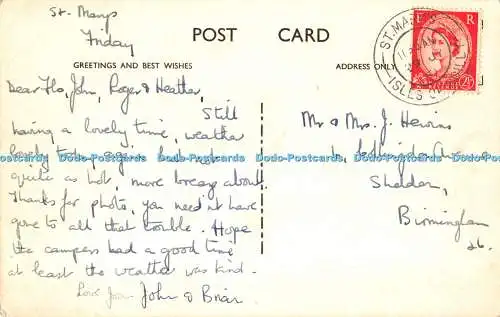 St. Marys
Friday
POST CARD
GREETINGS AND BEST WISHES
ADDRESS ONLY
E R
ST. MA
ISLES O
Dear Flo, John, Roger & Heather,
Still
having a lovely time, weather
lovely today, again but not
quite as hot, more breezy about.
Thanks for photo, you need'nt have
gone to all that trouble. Hope
the campers had a good time
at least the weather was kind.
Love from John & Brian
Mr & Mrs. J. Hewins
Sheldon,
Birmingham
26.
Dodo-Postcards Dodo-Postcards Dodo-Postcards Dodo-Postcards Dodo-Postcards Dodo-Postcards